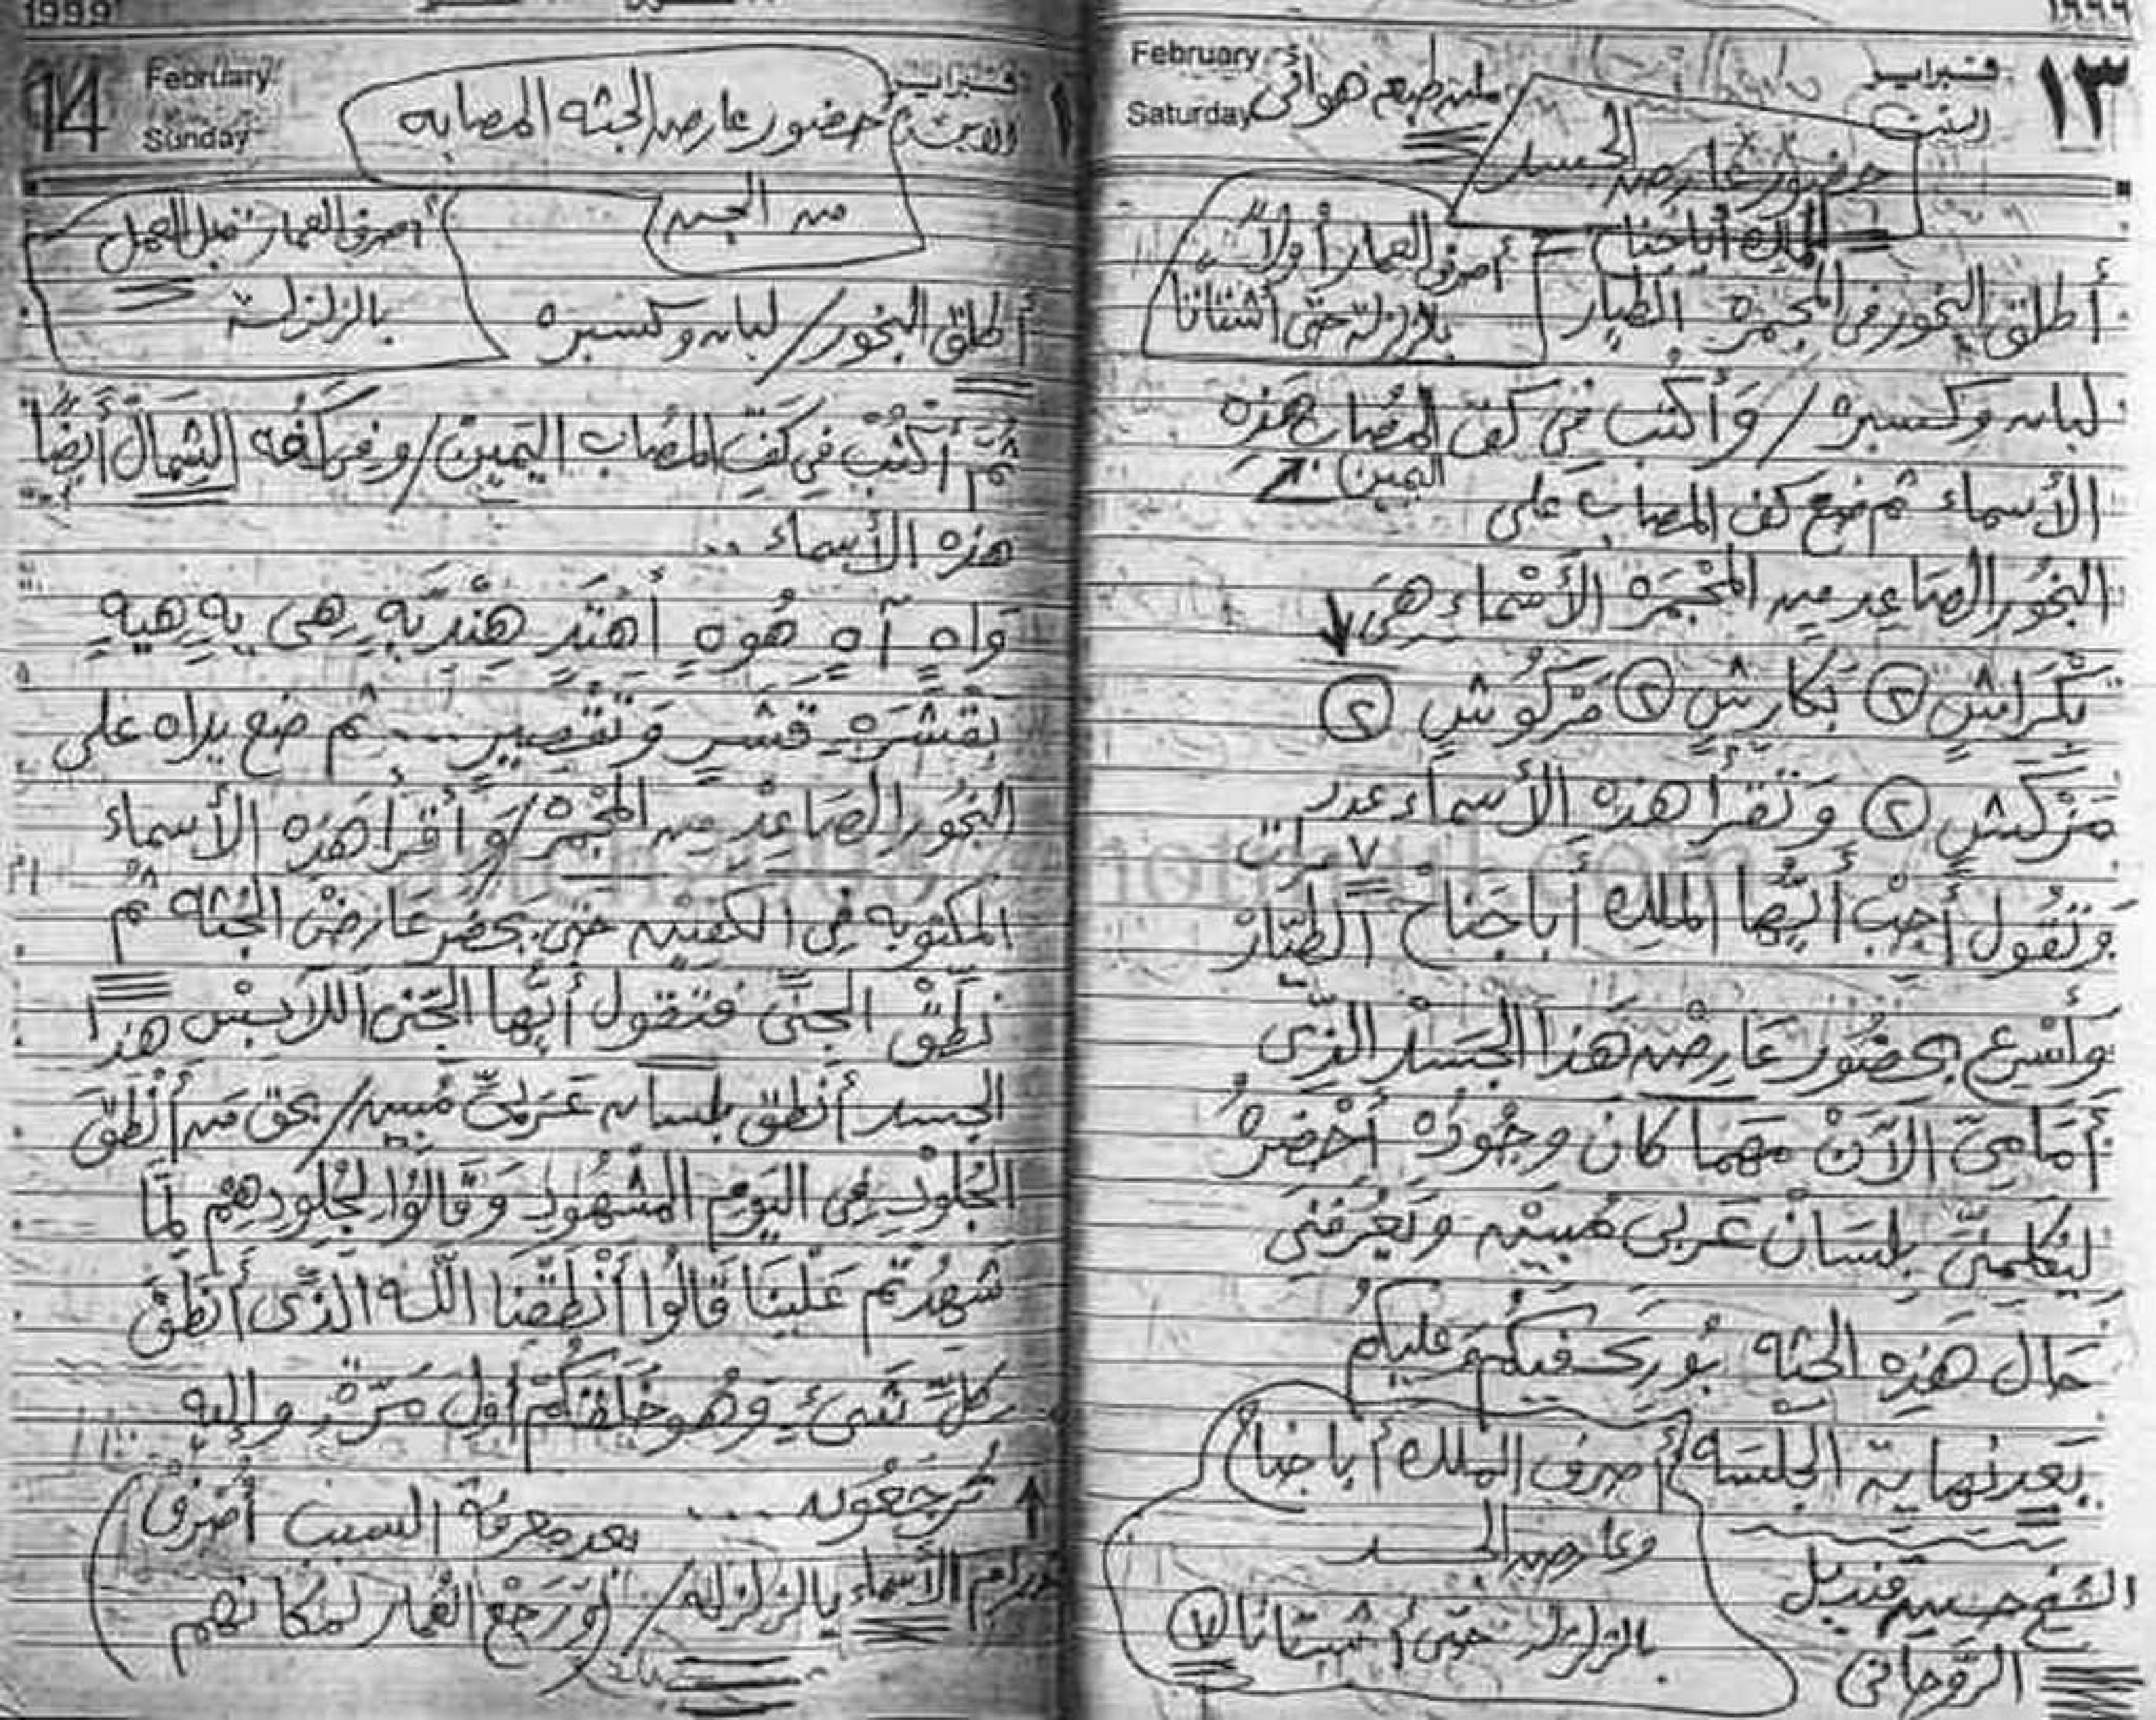 ١٩٩٩
١٣
فبراير
السبت
February
Saturday
لمن طبعه هوائى
حضور عارض الجسد
الملك أباجناح
أصرف العمار أولاً
بالزلزلة حتى أشتاتا
أطلق البخور فى المجمرة الطيار
لبان وكسبره / وَأكتب فى كف المصاب هذه
اليمين
الأسماء ثم ضع كف المصاب على
البَخُور الصَاعِد مِن المَجْمَرَة الأَسْمَاء هِىَ
بَكْرَاشٍ ٢ بَكارِشٍ ٢ مَرْكُوشٍ ٢
مَرْكَشٍ ٢ وَتَقرَأ هَذِهِ الأَسماء عدد
٧ مرات
وَتَقُول أَجِبْ أَيُّها المَلِك أَبا جَناحْ الطَيّارْ
وَأَسْرِع بِحُضُور عَارِض هَذا الجَسَد الذِّى
أَمَامِىّ الآَنْ مَهَما كَانَ وجُودُهُ أَحْضِرْهُ
لِيُكَلِمَنِىّ بِلِسَانْ عَربِى مُبِيْن وَيُعَرِفَنِى
حَال هَذِه الجثه بُورِكَ فيِكُم وَعَليكُم
بَعد نهاية الجَلْسَه أصرف الملك أبا جناح
وعارض الجسد
بالزلزلة حتى أشتاتا ٧
الشيخ حسين قنديل
الرَّوحَانى
1999
14
February
Sunday
فبراير
حضور عارض الجثه المصابه
من الجن
أصرف العمار قبل العمل
بالزلزلة
أطلق البخور / لبان وكسبره
ثُمّ أَكْتُبْ فِى كَفّ المُصَاب اليَمِيِنْ / وَفِى كَفِه الشِمَالْ أَيْضًا
هذه الأسماء ..
وَاهٍ آهٍ هُوهٍ أَهَنَدٍ هِنْدِيَهٍ هِى يَهٍ هِيَهٍ
بِقَشْرَهٍ قَشَرٍ وَتَقْصِيرٍ .... ثم ضع يداه على
البَخُور الصَاعِدْ مِن المَجْمَرْ / وَأقرأ هَذِه الأسماء
المكتوبه فِى الكَفيْن حَتى يحضر عَارِضْ الجُثه ثُم
نَطِّقْ الجِنّى فتقول أَيُّها الجّنى اللاّبِسْ هَذا
الجسد أَنطق بلسان عَرَبىّ مُبِين / بِحَق مَن أَنْطَقَ
الجُلُودِ فِى اليَومِ المَشْهُودِ وَقَالُوُا لِجُلُودِهِمْ لِمَا
شَهِدُتم عَلَيْنَا قَالُوا أَنْطَقَنَا اللَّه الَّذِّى أَنطَقْ
كُلّ شَىْءٍ وَهُوَ خَلَقَكُمْ أَولَ مَرّةٍ وإليه
تُرجَعُون .... بعد معرفة السبب أصرف
خدام الأسماء بالزلزله / وَرَجّع العُمار لمكانهم